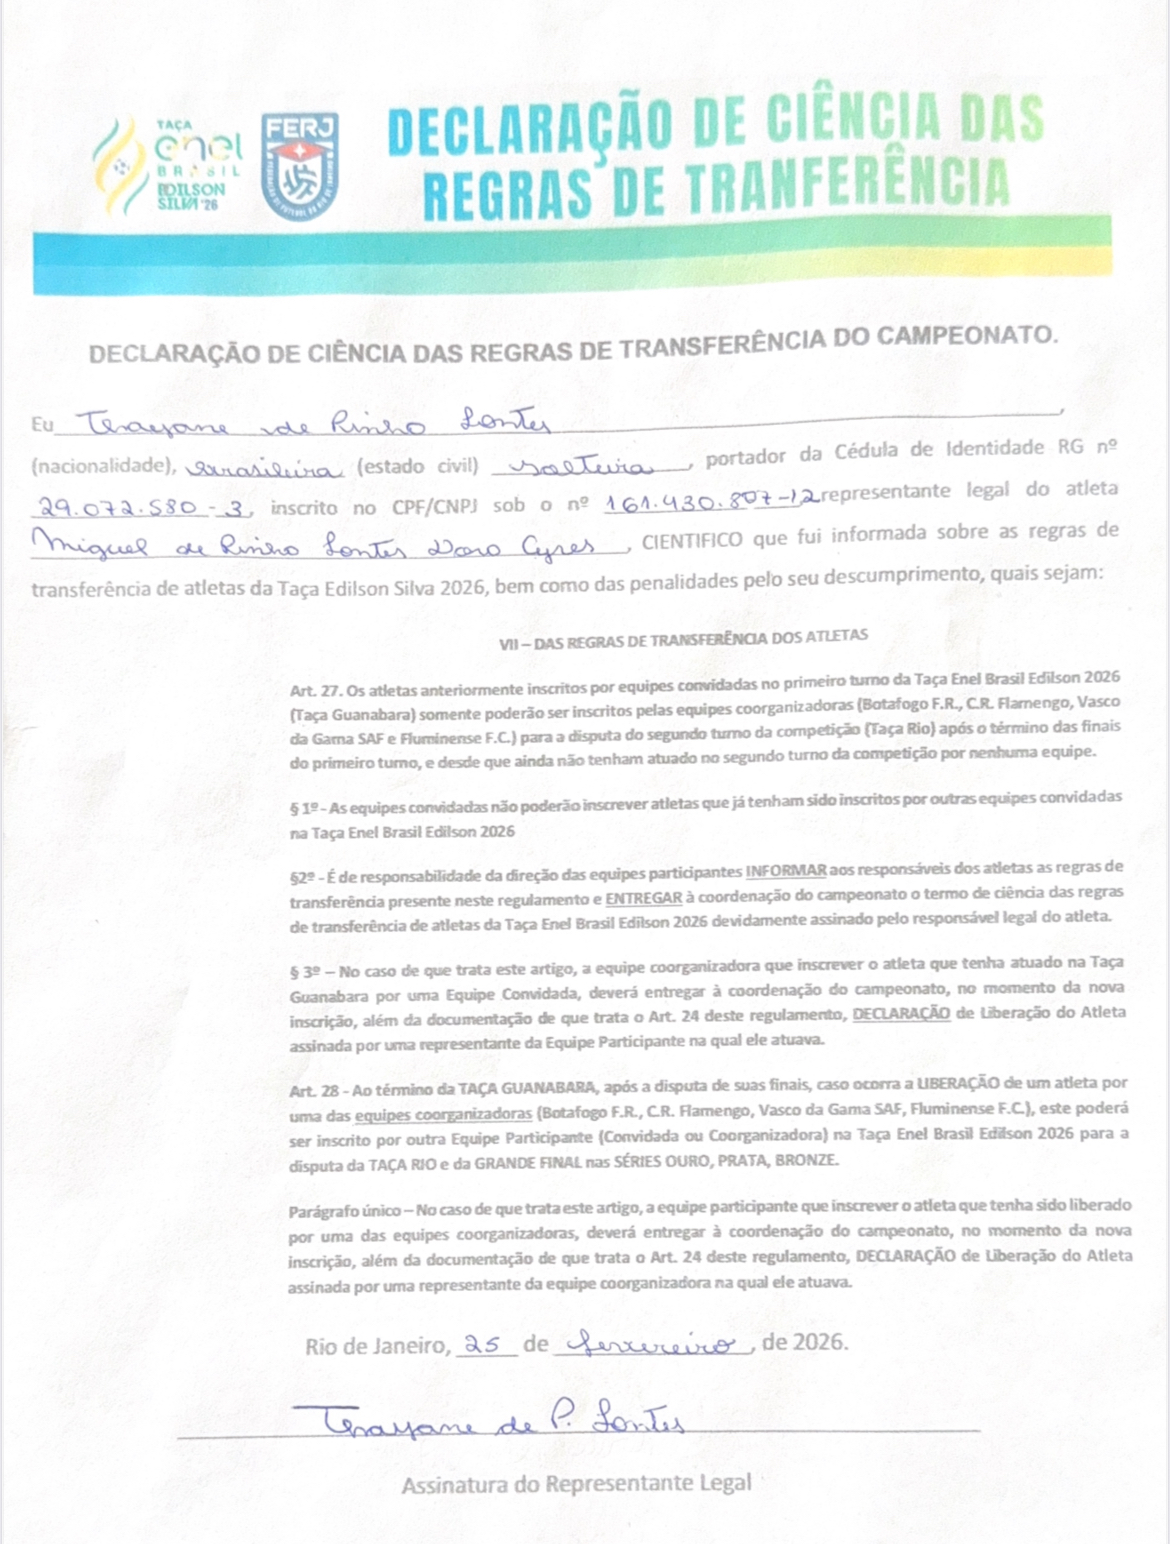 TAÇA
enel
BRASIL
EDILSON
SILVA '26
FERJ
DECLARAÇÃO DE CIÊNCIA DAS
REGRAS DE TRANFERÊNCIA
DECLARAÇÃO DE CIÊNCIA DAS REGRAS DE TRANSFERÊNCIA DO CAMPEONATO.
Eu Thayane de Pinho Fontes,
(nacionalidade), brasileira (estado civil) solteira, portador da Cédula de Identidade RG nº
29.072.580-3, inscrito no CPF/CNPJ sob o nº 161.430.807-12 representante legal do atleta
Miguel de Pinho Fontes Cyres, CIENTIFICO que fui informada sobre as regras de
transferência de atletas da Taça Edilson Silva 2026, bem como das penalidades pelo seu descumprimento, quais sejam:
VII – DAS REGRAS DE TRANSFERÊNCIA DOS ATLETAS
Art. 27. Os atletas anteriormente inscritos por equipes convidadas no primeiro turno da Taça Enel Brasil Edilson 2026
(Taça Guanabara) somente poderão ser inscritos pelas equipes coorganizadoras (Botafogo F.R., C.R. Flamengo, Vasco
da Gama SAF e Fluminense F.C.) para a disputa do segundo turno da competição (Taça Rio) após o término das finais
do primeiro turno, e desde que ainda não tenham atuado no segundo turno da competição por nenhuma equipe.
§ 1º - As equipes convidadas não poderão inscrever atletas que já tenham sido inscritos por outras equipes convidadas
na Taça Enel Brasil Edilson 2026
§2º - É de responsabilidade da direção das equipes participantes INFORMAR aos responsáveis dos atletas as regras de
transferência presente neste regulamento e ENTREGAR à coordenação do campeonato o termo de ciência das regras
de transferência de atletas da Taça Enel Brasil Edilson 2026 devidamente assinado pelo responsável legal do atleta.
§ 3º – No caso de que trata este artigo, a equipe coorganizadora que inscrever o atleta que tenha atuado na Taça
Guanabara por uma Equipe Convidada, deverá entregar à coordenação do campeonato, no momento da nova
inscrição, além da documentação de que trata o Art. 24 deste regulamento, DECLARAÇÃO de Liberação do Atleta
assinada por uma representante da Equipe Participante na qual ele atuava.
Art. 28 - Ao término da TAÇA GUANABARA, após a disputa de suas finais, caso ocorra a LIBERAÇÃO de um atleta por
uma das equipes coorganizadoras (Botafogo F.R., C.R. Flamengo, Vasco da Gama SAF, Fluminense F.C.), este poderá
ser inscrito por outra Equipe Participante (Convidada ou Coorganizadora) na Taça Enel Brasil Edilson 2026 para a
disputa da TAÇA RIO e da GRANDE FINAL nas SÉRIES OURO, PRATA, BRONZE.
Parágrafo único – No caso de que trata este artigo, a equipe participante que inscrever o atleta que tenha sido liberado
por uma das equipes coorganizadoras, deverá entregar à coordenação do campeonato, no momento da nova
inscrição, além da documentação de que trata o Art. 24 deste regulamento, DECLARAÇÃO de Liberação do Atleta
assinada por uma representante da equipe coorganizadora na qual ele atuava.
Rio de Janeiro, 25 de fevereiro, de 2026.
Thayane de P. Fontes
Assinatura do Representante Legal